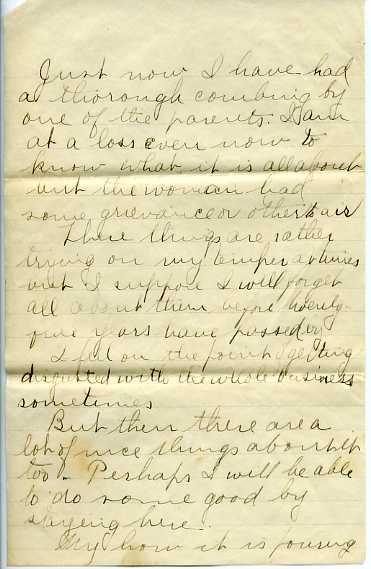 Just now I have had
a thorough combing by
one of the parents. I am
at a loss even now to
know what it is all about
but the woman had
some grievance or other to air
These things are rather
trying on my temper at times
but I suppose I will forget
all about them before twenty-
five years have passed by
I feel on the point of getting
disgusted with the whole business
sometimes
But then there are a
lot of nice things about it
too - Perhaps I will be able
to do some good by
staying here.
My how it is pouring